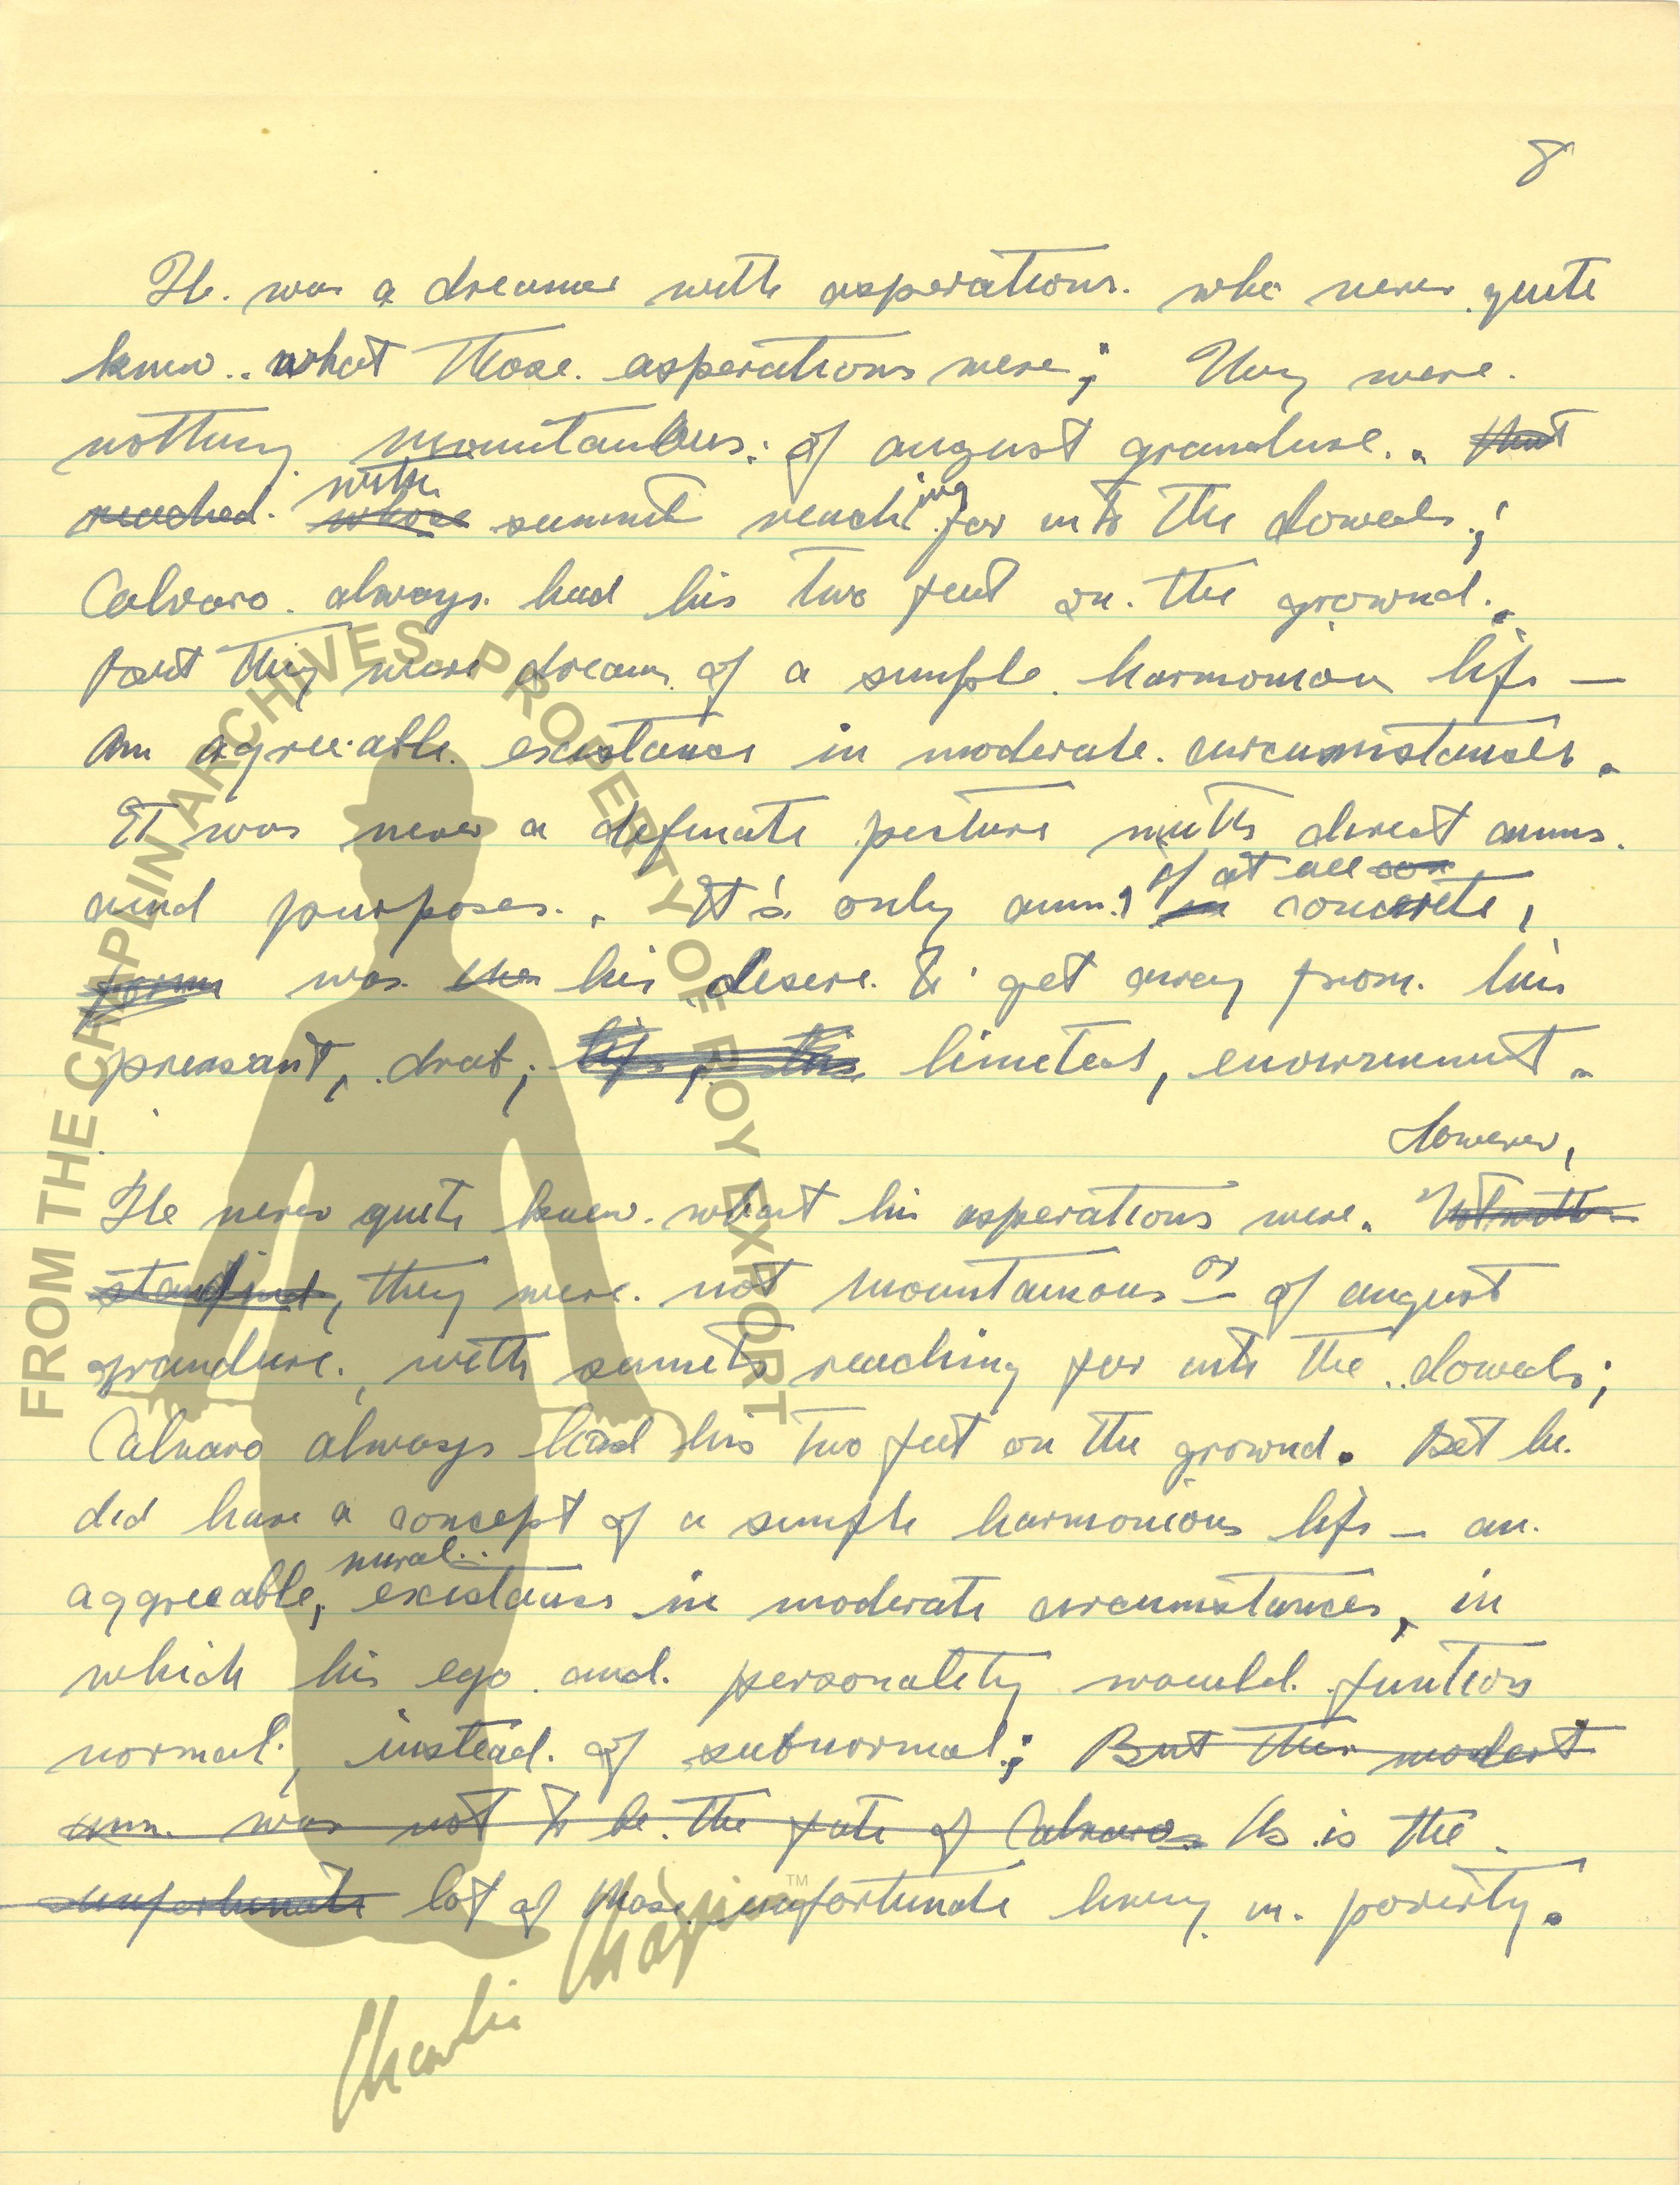 8
He was a dreamer with asperations. who never quite
knew.. what those. asperations were; They were.
nothing mountanous. of august grandure.. that
with
reached. whose summit reaching far into the clowds.;
Calvaro. always. had his two feet on. the grownd..
but they were dreams of a simple. harmonious life —
an agreeable. existance in moderate. circumstances.
It was never a definate picture with direct aims.
if at all con
and purposes.. It's only aim, in concrete,
form was the his desire. to get away from. his
preasant, drab, life, this limeted, enviornment.
However,
He never quite knew. what his asperations were. Notwith-
or
standing, they were. not mountainous — of august
grandure., with sumets reaching far into the clowds;
Calvaro always had his two feet on the grownd. But he.
did have a concept of a simple harmonious life — an.
aggreeable, existance in moderate circumstances, in
which his ego. and. personality would. funtion
normal., instead. of subnormal.; But this modest
aim. was not to be. the fate of Calvaro. is the
unfortunate lot of those. unfortunate living in. poverity.
FROM THE CHAPLIN ARCHIVES. PROPERTY OF ROY EXPORT
Charlie Chaplin™